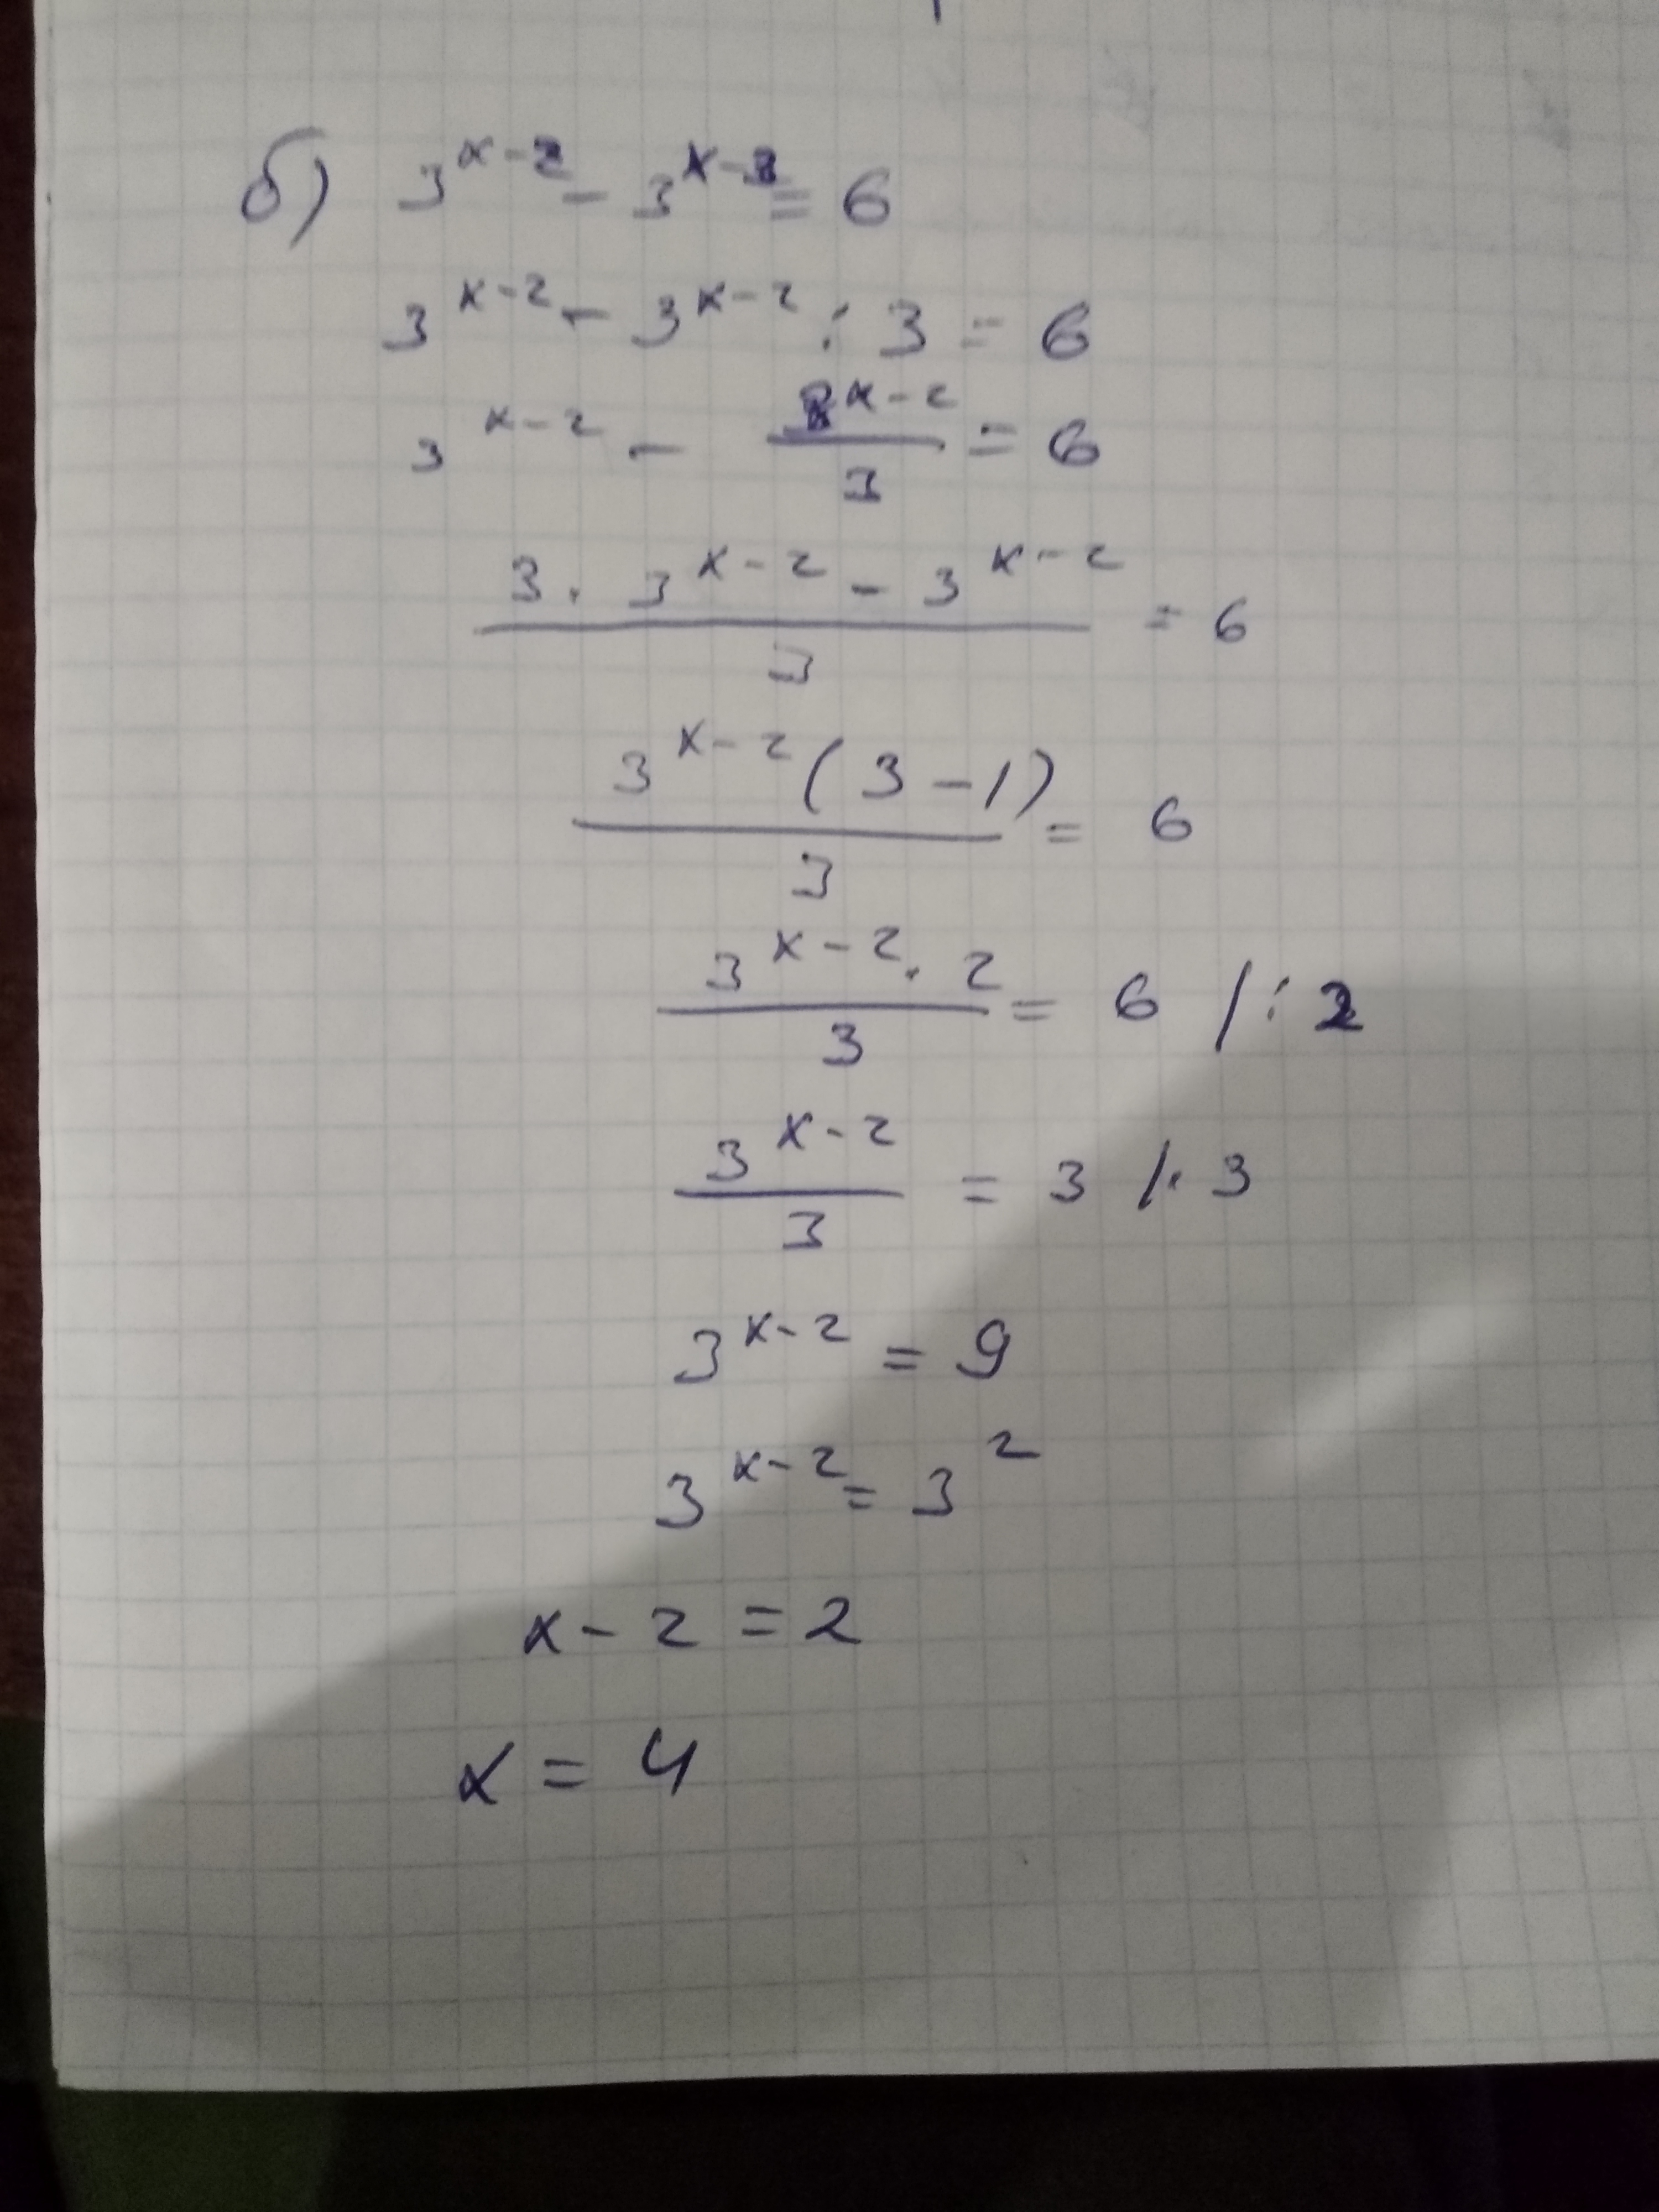 б) 3^{x-2} - 3^{x-3} = 6
3^{x-2} - 3^{x-2} : 3 = 6
3^{x-2} - \frac{3^{x-2}}{3} = 6
\frac{3 · 3^{x-2} - 3^{x-2}}{3} = 6
\frac{3^{x-2}(3-1)}{3} = 6
\frac{3^{x-2} · 2}{3} = 6 /: 2
\frac{3^{x-2}}{3} = 3 /· 3
3^{x-2} = 9
3^{x-2} = 3^2
x - 2 = 2
x = 4